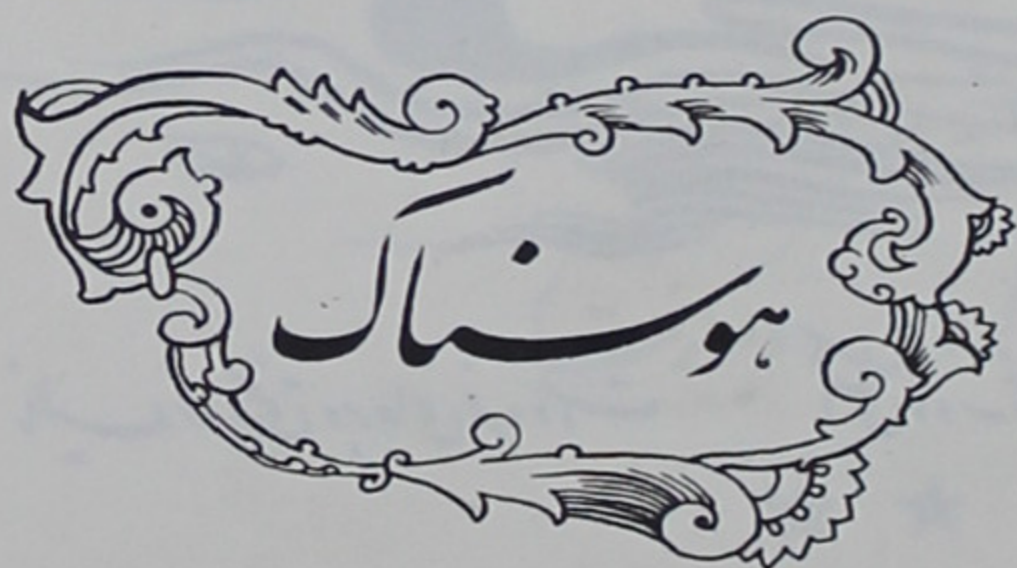 هوسناک